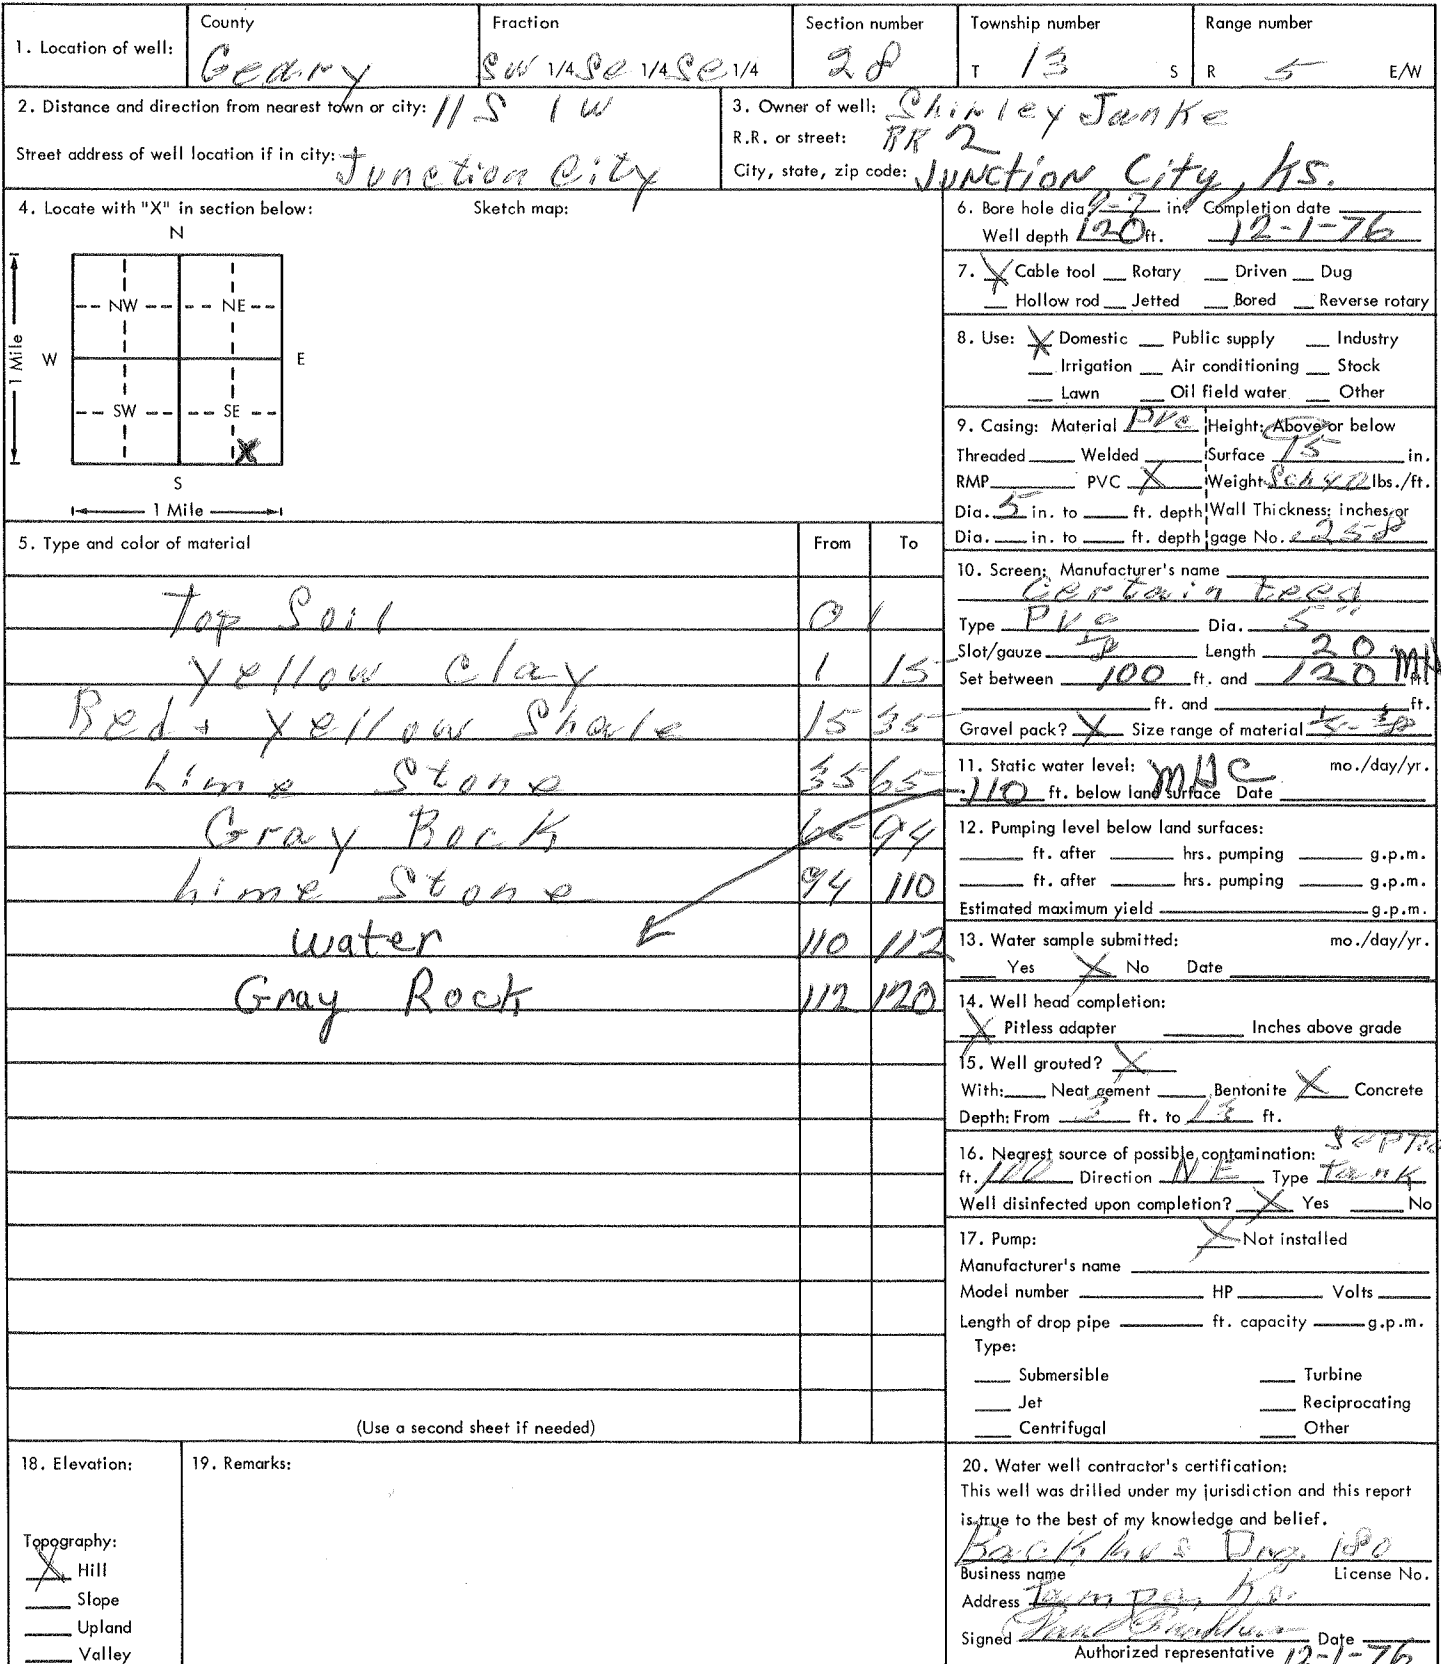 1. Location of well: County Geary Fraction SW 1/4 Se 1/4 Se 1/4 Section number 28 Township number T 13 S Range number R 5 E/W
2. Distance and direction from nearest town or city: 11 S 1 W
Street address of well location if in city: Junction City
3. Owner of well: Shirley Janke
R.R. or street: RR 2
City, state, zip code: Junction City, KS.
4. Locate with "X" in section below: Sketch map:
N
NW NE
W E
1 Mile
SW SE
X
S
1 Mile
5. Type and color of material From To
Top Soil 0 1
Yellow Clay 1 15
Red + Yellow Shale 15 35
Lime Stone 35 65
Gray Rock 65 94
Lime Stone 94 110
water 110 112
Gray Rock 112 120
(Use a second sheet if needed)
6. Bore hole dia 9-7 in. Completion date
Well depth 120 ft. 12-1-76
7. X Cable tool Rotary Driven Dug
Hollow rod Jetted Bored Reverse rotary
8. Use: X Domestic Public supply Industry
Irrigation Air conditioning Stock
Lawn Oil field water Other
9. Casing: Material PVC Height: Above or below
Threaded Welded Surface 15 in.
RMP PVC X Weight Sch 40 lbs./ft.
Dia. 5 in. to ft. depth Wall Thickness: inches or
Dia. in. to ft. depth gage No. .258
10. Screen: Manufacturer's name
Certain teed
Type PVC Dia. 5"
Slot/gauze 1/8 Length 20
Set between 100 ft. and 120 ft.
ft. and ft.
Gravel pack? X Size range of material
11. Static water level: MHC mo./day/yr.
110 ft. below land surface Date
12. Pumping level below land surfaces:
ft. after hrs. pumping g.p.m.
ft. after hrs. pumping g.p.m.
Estimated maximum yield g.p.m.
13. Water sample submitted: mo./day/yr.
Yes X No Date
14. Well head completion:
X Pitless adapter Inches above grade
15. Well grouted? X
With: Neat cement Bentonite X Concrete
Depth: From 3 ft. to 13 ft.
16. Nearest source of possible contamination: Septic
ft. 100 Direction NE Type tank
Well disinfected upon completion? X Yes No
17. Pump: X Not installed
Manufacturer's name
Model number HP Volts
Length of drop pipe ft. capacity g.p.m.
Type:
Submersible Turbine
Jet Reciprocating
Centrifugal Other
18. Elevation:
Topography:
X Hill
Slope
Upland
Valley
19. Remarks:
20. Water well contractor's certification:
This well was drilled under my jurisdiction and this report
is true to the best of my knowledge and belief.
Backhus Drg. 180
Business name License No.
Address Tampa, Ks.
Signed Paul Backhus Date
Authorized representative 12-1-76